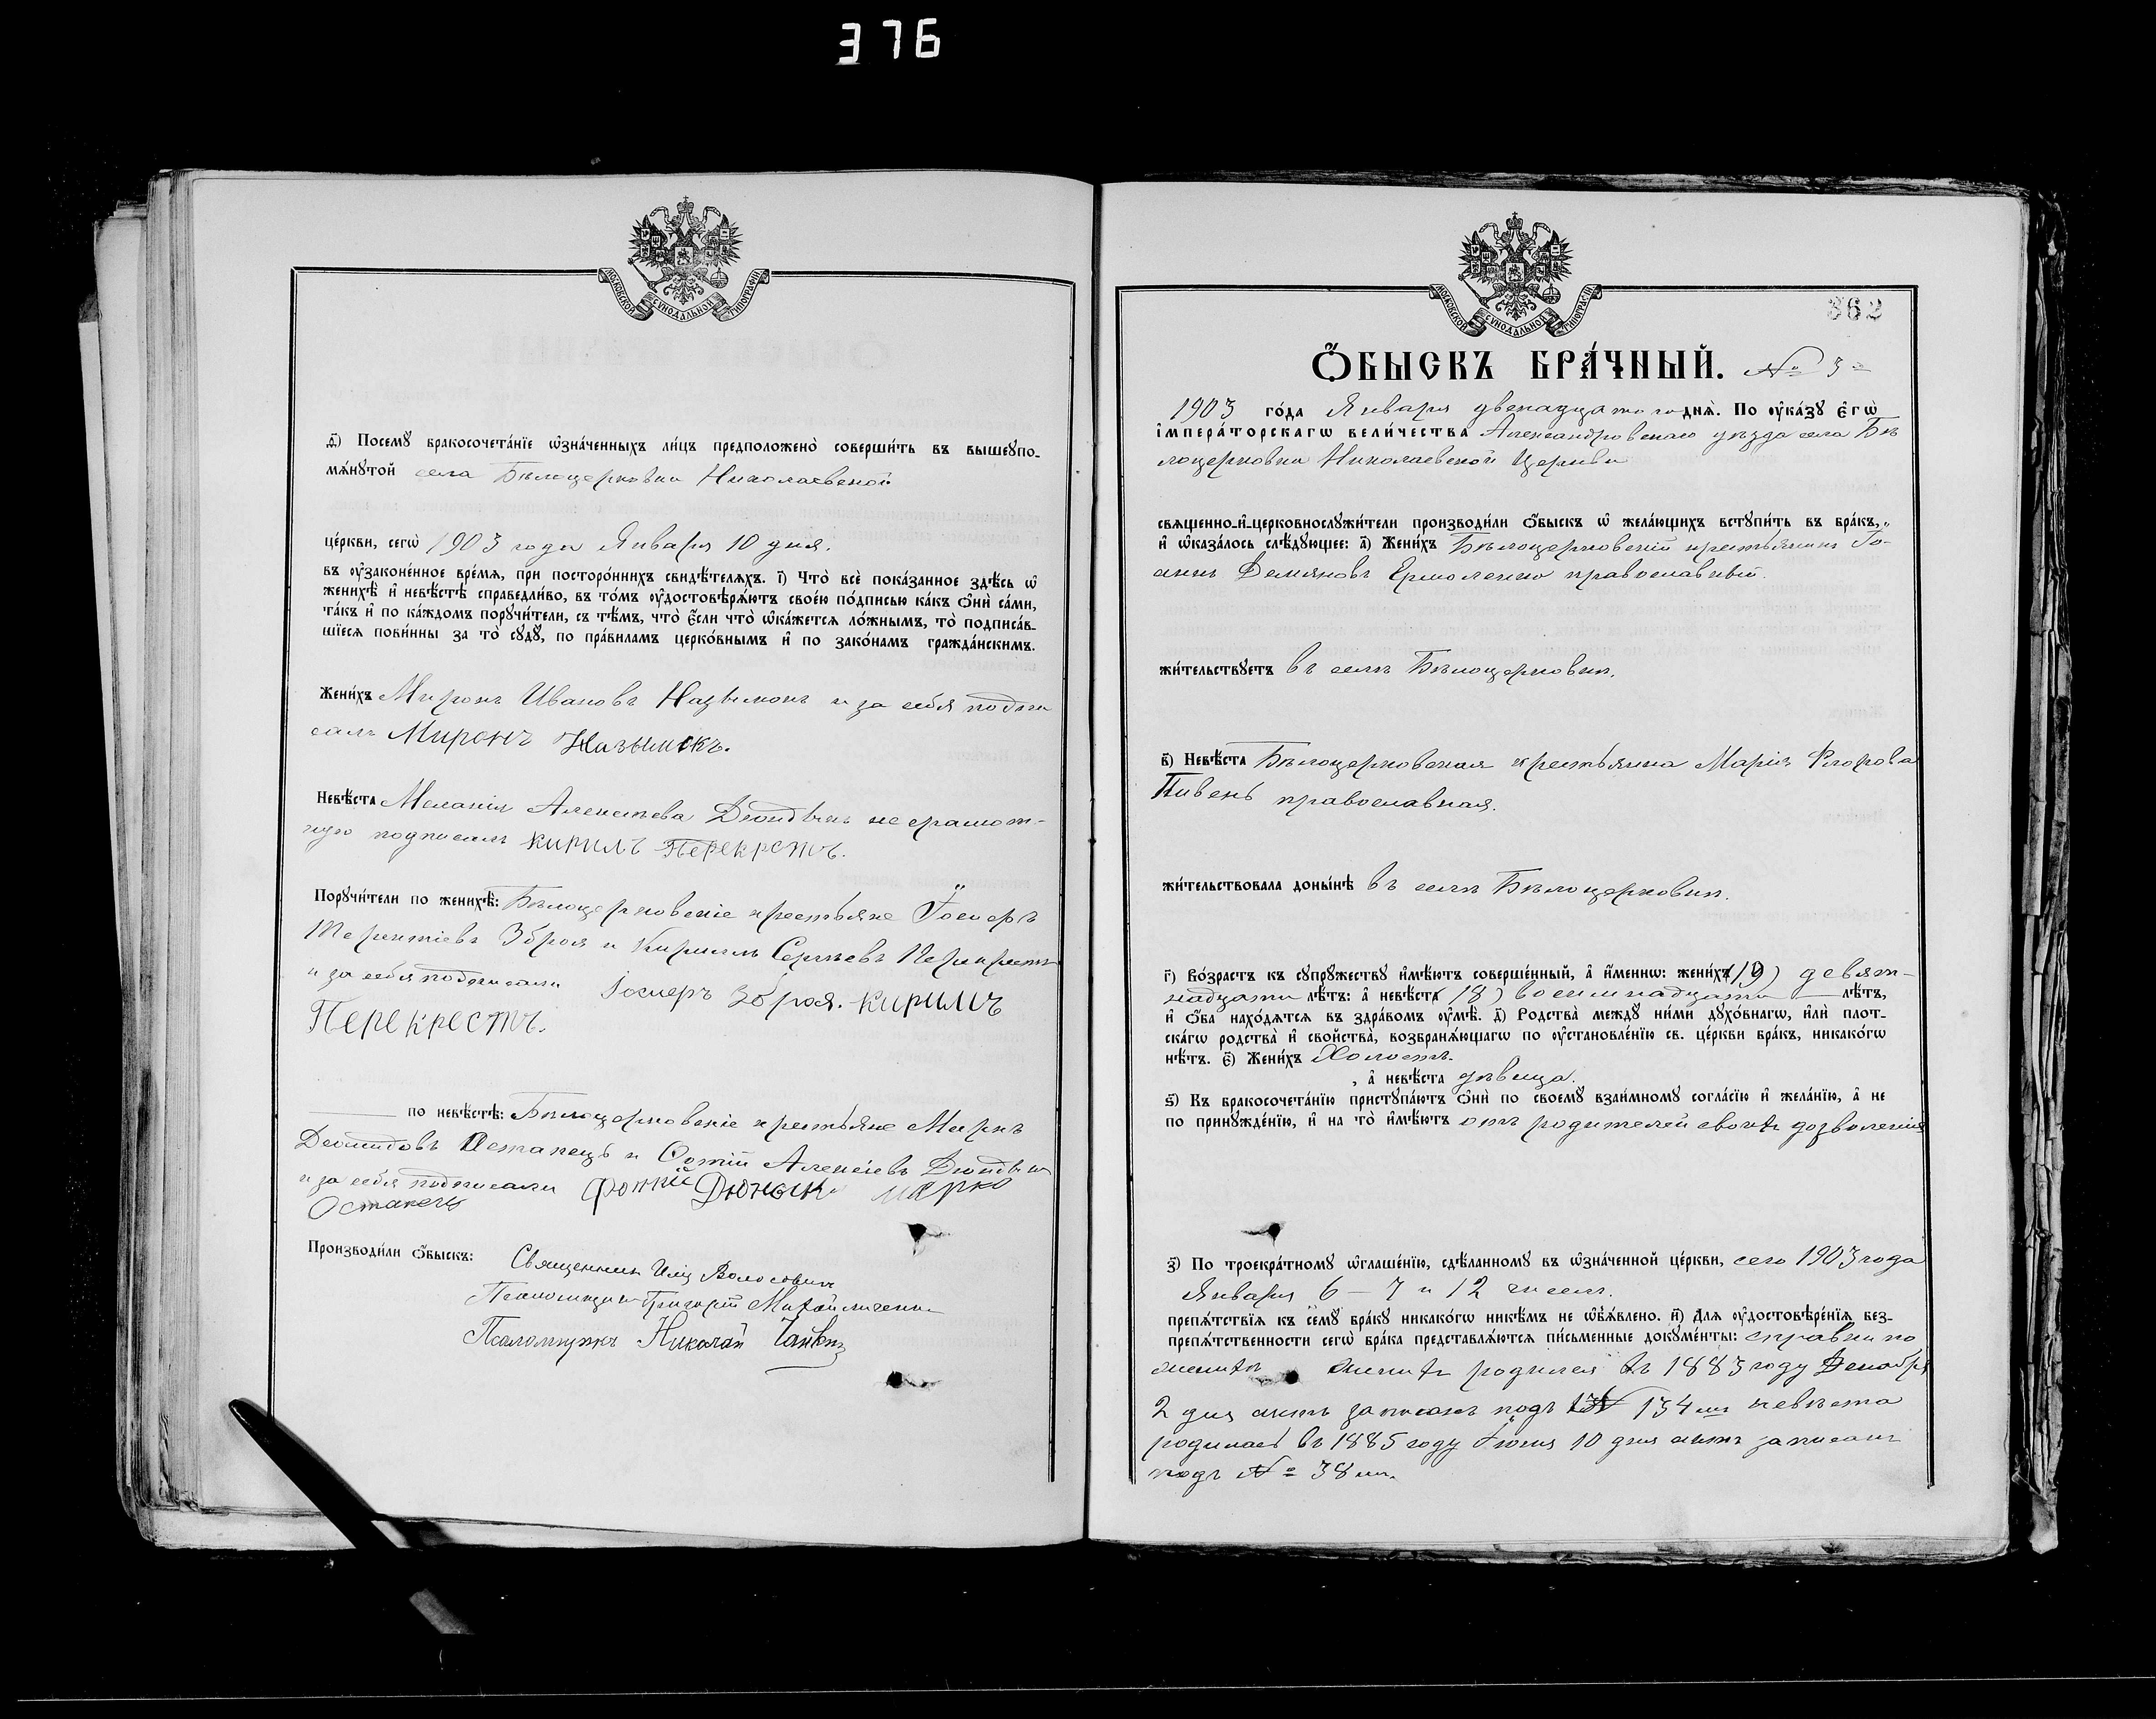 376
МОСКОВСКОЙ СУНОДАЛЬНОЙ ТИПОГРАФІИ
д҃) Посемꙋ̀ бракосочета́нїе ѡ҆зна́ченныхъ ли́цъ предположено̀ соверши́ть въ вышеꙋпо-
мѧ́нꙋтой села Бѣлоцерковки Николаевской
це́ркви, сегѡ̀ 1903 года Января 10 дня.
въ ᲂу҆законе́нное вре́мѧ, при посторо́ннихъ свидѣ́телѧхъ. і҃) Что̀ всѐ пока́занное здѣ́сь ѡ҆
женихѣ̀ и҆ невѣ́стѣ справедли́во, въ то́мъ ᲂу҆достовѣрѧ́ютъ свое́ю по́дписью ка́къ ѻ҆нѝ са́ми,
та́къ и҆ по ка́ждомъ порꙋчи́тели, съ тѣ́мъ, что̀ є҆́сли что̀ ѡ҆ка́жетсѧ ло́жнымъ, то̀ подписа́в-
шїесѧ пови́нны за то̀ сꙋдꙋ̀, по пра́виламъ церко́внымъ и҆ по зако́намъ гражда́нскимъ.
Жени́хъ Миронъ Ивановъ Назымокъ и за себя подпи
салъ Миронъ Назымокъ.
Невѣ́ста Меланія Алексѣева Дюндикъ неграмот-
ную подписалъ Кирилъ Перекрестъ.
Порꙋчи́тели по женихѣ̀: Бѣлоцерковскіе крестьяне Іосифъ
Терентіевъ Зброя и Кириллъ Сергѣевъ Перекрестъ
и за себя подписали Іосиеръ Зброя. Кирилъ
Перекрестъ.
по невѣ́стѣ: Бѣлоцерковскіе крестьяне Маркъ
Деомидовъ Остапецъ и Фотій Алексіевъ Дюндикъ
и за себя подписали Фотий Дюндик Марко
Остапецъ
Производи́ли ѻ҆́быскъ: Священникъ Илія Волосовичъ
Псаломщикъ Григорій Михайличенко
Псаломщикъ Николай
МОСКОВСКОЙ СУНОДАЛЬНОЙ ТИПОГРАФІИ
362
Ѻ҆́БЫСКЪ БРА́ЧНЫЙ. № 3
1903 го́да Января двенадцатого днѧ̀. По ᲂу҆ка́зꙋ є҆гѡ̀
і҆мпера́торскагѡ вели́чества Александровскаго уѣзда села Бѣ
лоцерковки Николаевской Церкви
свѧще́нно-и҆-церковнослꙋжи́тели производи́ли ѻ҆́быскъ ѡ҆ жела́ющихъ встꙋпи́ть въ бра́къ,
и҆ ѡ҆каза́лось слѣ́дꙋющее: а҃) Жени́хъ Бѣлоцерковскій крестьянинъ Іо-
аннъ Демяновъ Ермоленко православный.
жи́тельствꙋетъ въ селѣ Бѣлоцерковки.
в҃) Невѣ́ста Бѣлоцерковская крестьянка Марія Флорова
Пивень православная.
жи́тельствовала доны́нѣ въ селѣ Бѣлоцерковки.
г҃) Во́зрастъ къ сꙋпрꙋ́жествꙋ и҆мѣ́ютъ соверше́нный, а҆ и҆́меннѡ: жени́хъ (19) девят-
надцати лѣ́тъ: а҆ невѣ́ста 18) восемнадцати лѣ́тъ,
и҆ ѻ҆́ба нахо́дѧтсѧ въ здра́вомъ ᲂу҆мѣ̀. д҃) Родства̀ междꙋ ни́ми дꙋхо́внагѡ, и҆лѝ плот-
ска́гѡ родства̀ и҆ сво́йства, возбранѧ́ющагѡ по ᲂу҆становле́нїю св. це́ркви бра́къ, никако́гѡ
нѣ́тъ. є҃) Жени́хъ Холостъ.
, а҆ невѣ́ста дѣвица.
ѕ҃) Къ бракосочета́нїю пристꙋпа́ютъ ѻ҆нѝ по своемꙋ̀ взаи́мномꙋ согла́сїю и҆ жела́нїю, а҆ не
по принꙋжде́нїю, и҆ на то̀ и҆мѣ́ютъ отъ родителей своихъ дозволенія
з҃) По троекра́тномꙋ ѡ҆глаше́нїю, сдѣ́ланномꙋ въ ѡ҆зна́ченной це́ркви, сего 1903 года
Января 6 – 7 и 12 чиселъ.
препѧ́тствїѧ къ семꙋ̀ бра́кꙋ никако́гѡ никѣ́мъ не ѡ҆бъѧ́влено. и҃) Для ᲂу҆достовѣре́нїѧ без-
препѧ́тственности сегѡ̀ бра́ка представлѧ́ютсѧ пи́сьменные докꙋме́нты: справки по
женихъ родился въ 1883 году Декабря
2 дня актъ записанъ подъ № 134 мъ невѣста
родилась въ 1885 году Іюня 10 дня актъ записанъ
подъ № 38 мъ.